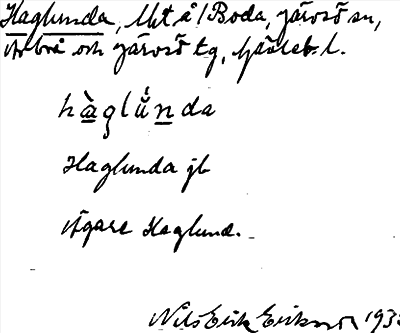 Haglunda, lht å /Boda, Järvsö sn,
Arbrå och Järvsö tg, Gävleb. l.
hàglǘnda
Haglunda jb
Ägare Haglund.
Nils Erik Eriksson 193